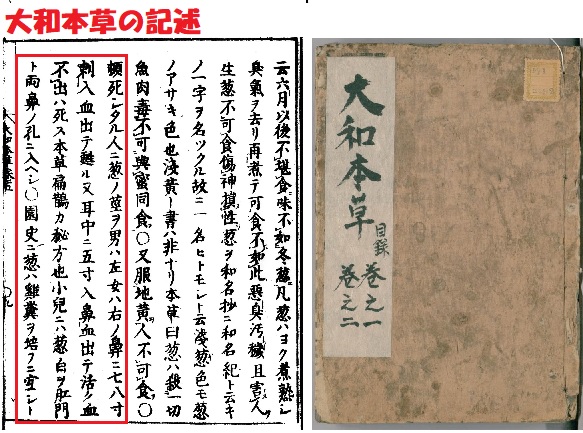 大和本草の記述
云六月以後不堪食味不如冬葱凡葱ハヨク煮熟シ
臭氣ヲ去リ再煮テ可食不如此悪臭汚穢且害人
生葱不可食傷神損性葱ヲ和名抄ニ和名紀ト云キ
ノ一字ヲ名ツクル故ニ一名ヒトモシト云浅葱色モ葱
ノアサキ色也浅黄ト書ハ非ナリ本草曰葱ハ殺一切
魚肉毒不可與蜜同食〇又服地黄人不可食〇
頓死シタル人ニ葱ノ莖ヲ男ハ左女ハ右ノ鼻ニ七八寸
刺入血出テ甦ル又耳中ニ五寸入鼻血出テ活ク血
不出ハ死ス本草扁鵲カ秘方也小兒ニハ葱白ヲ肛門
ト両鼻ノ孔ニ入ヘシ〇園史ニ葱ハ雞糞ヲ培フニ宜シト
大和本草
目録
巻之一
巻之二